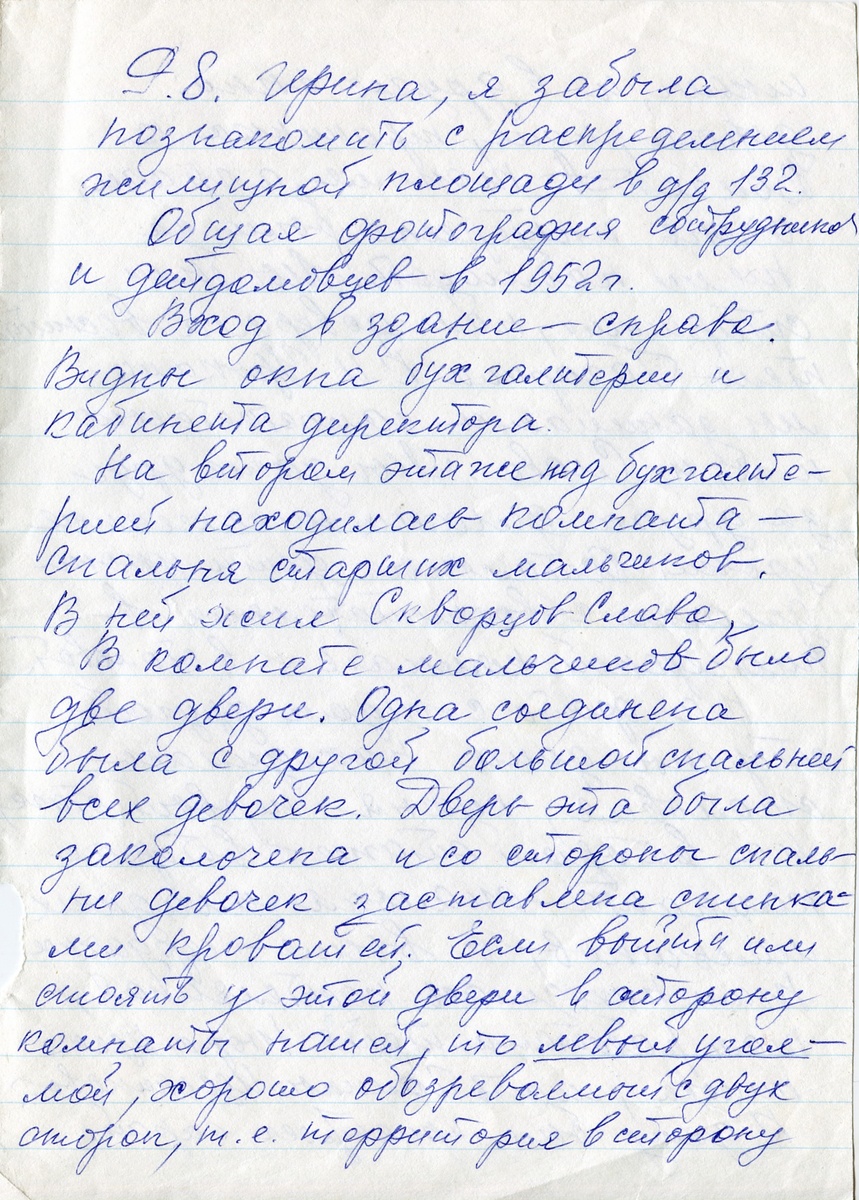 P.S. Ирина, я забыла
познакомить с распределением
жилищной площади в д/д 132.
Общая фотография сотрудников
и детдомовцев в 1952г.
Вход в здание – справа.
Видны окна бухгалтерии и
кабинета директора.
На втором этаже над бухгалте-
рией находилась комната –
спальня старших мальчиков.
В ней жил Скворцов Слава.
В комнате мальчиков было
две двери. Одна соединена
была с другой большой спальней
всех девочек. Дверь эта была
заколочена и со стороны спаль-
ни девочек заставлена спинка-
ми кроватей. Если выйти или
стоять у этой двери в сторону
комнаты нашей, то левый угол –
мой, хорошо обозреваемый с двух
сторон, т.е. территория в сторону